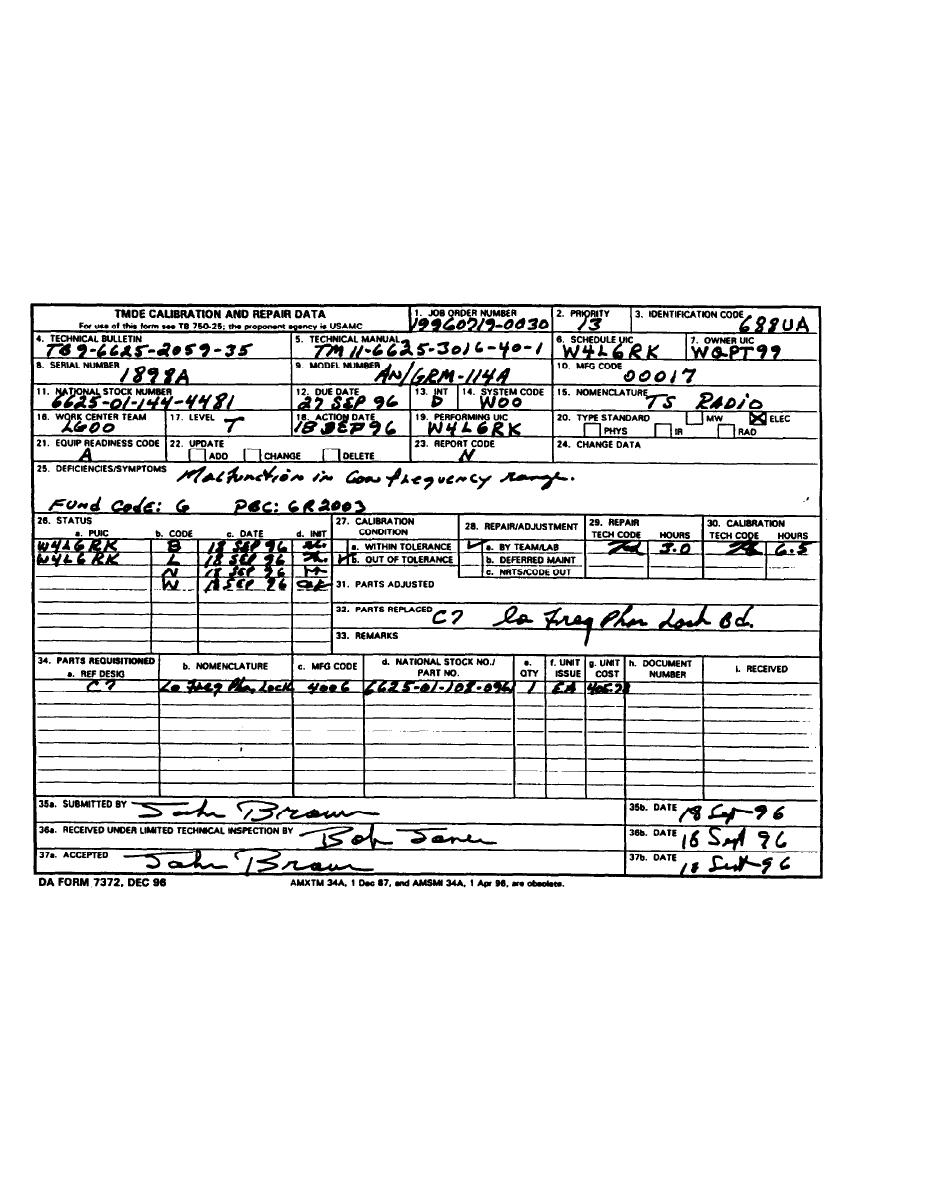 TMDE CALIBRATION AND REPAIR DATA
For use of this form see TB 750-25; the proponent agency is USAMC
1. JOB ORDER NUMBER
19960719-0030
2. PRIORITY
13
3. IDENTIFICATION CODE
688UA
4. TECHNICAL BULLETIN
TB9-6625-2059-35
5. TECHNICAL MANUAL
TM 11-6625-3016-40-1
6. SCHEDULE UIC
W4L6RK
7. OWNER UIC
WQPT99
8. SERIAL NUMBER
1898A
9. MODEL NUMBER
AN/GRM-114A
10. MFG CODE
00017
11. NATIONAL STOCK NUMBER
6625-01-144-4481
12. DUE DATE
27 SEP 96
13. INT
D
14. SYSTEM CODE
W00
15. NOMENCLATURE
TS RADIO
16. WORK CENTER TEAM
L600
17. LEVEL
T
18. ACTION DATE
18 SEP 96
19. PERFORMING UIC
W4L6RK
20. TYPE STANDARD
MW ELEC
PHYS IR RAD
21. EQUIP READINESS CODE
A
22. UPDATE
ADD CHANGE DELETE
23. REPORT CODE
N
24. CHANGE DATA
25. DEFICIENCIES/SYMPTOMS
Malfunction in low frequency range.
FUND Code: G PBC: 6R2003
26. STATUS
a. PUIC b. CODE c. DATE d. INIT
W4L6RK B 18 SEP 96
W4L6RK L 18 SEP 96
N 18 SEP 96
W 18 SEP 96
27. CALIBRATION CONDITION
a. WITHIN TOLERANCE
b. OUT OF TOLERANCE
28. REPAIR/ADJUSTMENT
a. BY TEAM/LAB
b. DEFERRED MAINT
c. NRTS/CODE OUT
29. REPAIR
TECH CODE HOURS
3.0
30. CALIBRATION
TECH CODE HOURS
6.5
31. PARTS ADJUSTED
32. PARTS REPLACED
C7 Lo Freq Phas Lock Bd.
33. REMARKS
34. PARTS REQUISITIONED
a. REF DESIG
b. NOMENCLATURE
c. MFG CODE
d. NATIONAL STOCK NO./PART NO.
e. QTY
f. UNIT ISSUE
g. UNIT COST
h. DOCUMENT NUMBER
i. RECEIVED
C7 Lo Freq Phas Lock 4006 6625-01-108-0961 1 EA
35a. SUBMITTED BY
John Brown
35b. DATE
18 Sep 96
36a. RECEIVED UNDER LIMITED TECHNICAL INSPECTION BY
Bob Jones
36b. DATE
18 Sept 96
37a. ACCEPTED
John Brown
37b. DATE
18 Sept 96
DA FORM 7372, DEC 96
AMXTM 34A, 1 Dec 87, and AMSMI 34A, 1 Apr 96, are obsolete.